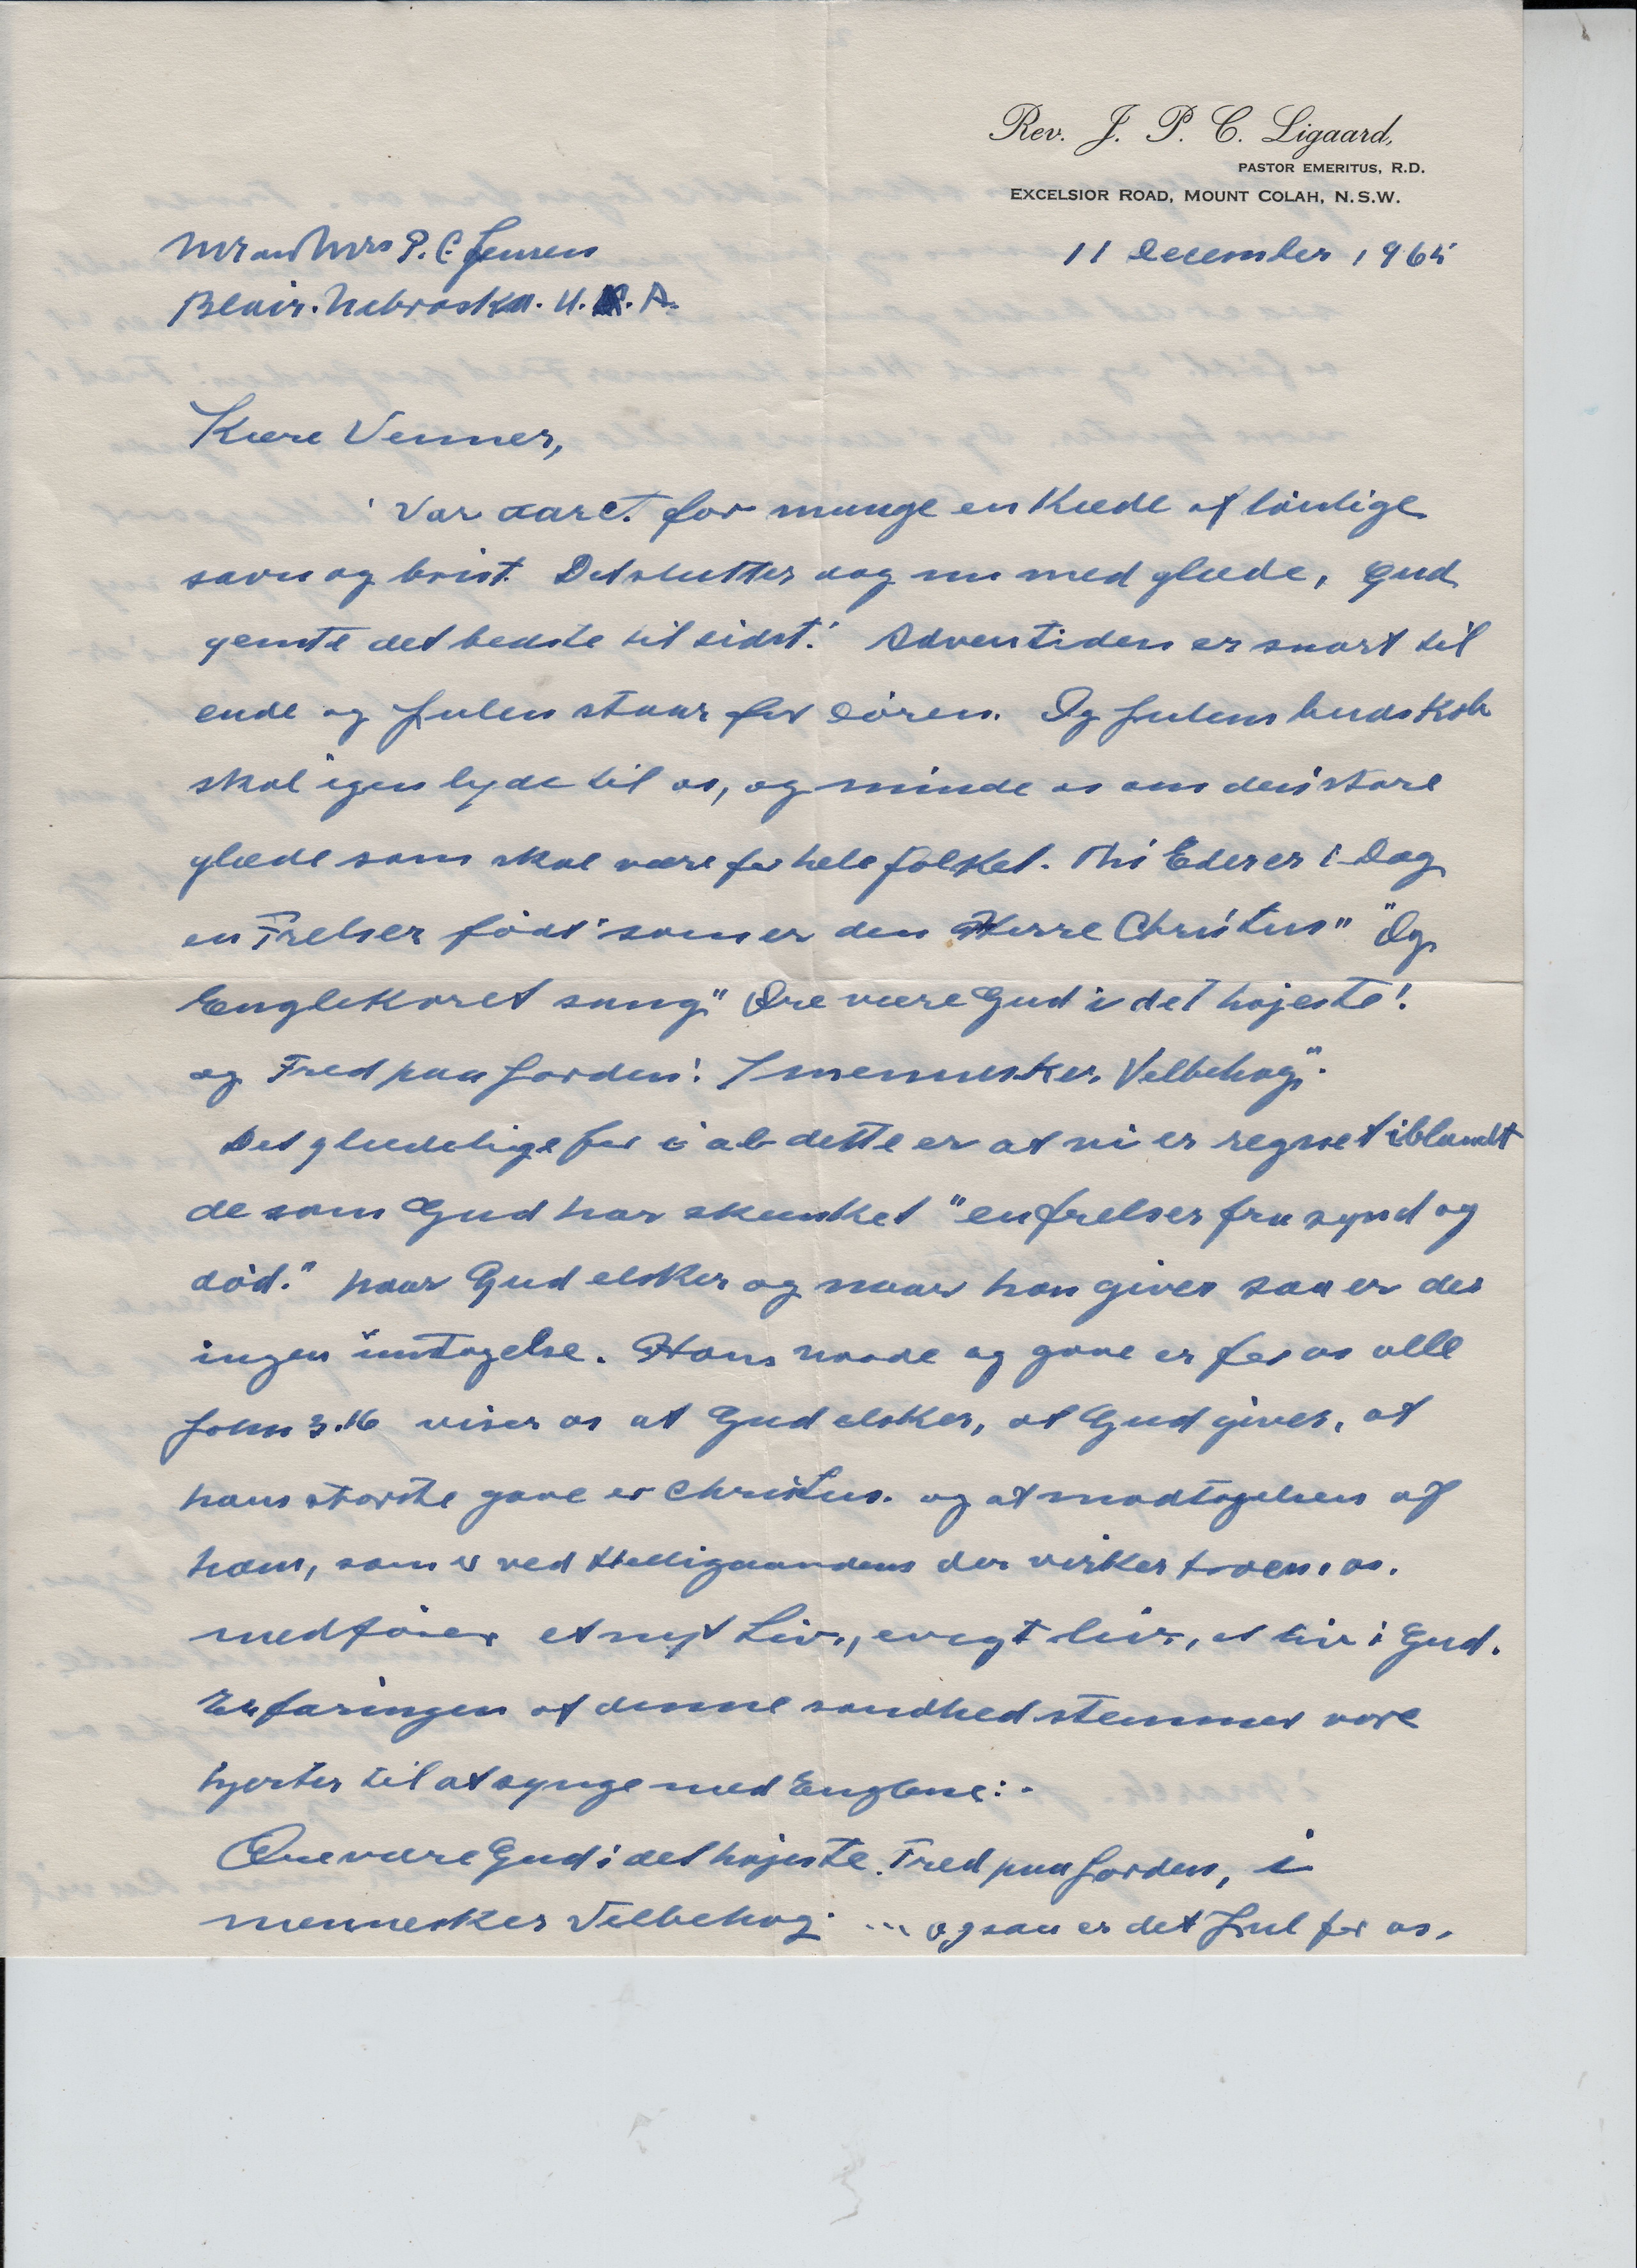 Rev. J. P. C. Ligaard,
PASTOR EMERITUS, R.D.
EXCELSIOR ROAD, MOUNT COLAH, N.S.W.
Mr and Mrs P. C. Jensen
11 December 1965
Blair. Nebraska. U. S. A.
Kære Venner,
'Var aaret for mange en Kæde af lønlige
savn og brist. Det slutter dog nu med glæde, Gud
gemte det bedste til sidst.' Adventiden er snart til
ende og Julen staar for Døren. Og Julens budskab
skal igen lyde til os, og minde os om den store
glæde som skal være for hele folket. Thi Eder er i Dag
en Frelser født som er den Herre Christus" "Og
Englekoret sang" Ære være Gud i det højeste!
og Fred paa Jorden! I mennesker Velbehag".
Det glædelige for i alt dette er at vi er regnet iblandt
de som Gud har skænket "en frelser fra synd og
död." Naar Gud elsker og naar han giver saa er der
ingen undtagelse. Hans naade og gave er for os alle
John 3.16 viser os at Gud elsker, at Gud giver, at
hans störste gave er Christus. og at modtagelsen af
ham, som er ved Helligaandens der virker troen i os.
medfører et nyt Liv, evigt liv, et liv i Gud.
Erfaringen af denne sandhed stemmer vore
hjerter til at synge med Englene:-
Ære være Gud i det højeste. Fred paa Jorden, i
mennesker Velbehag. ... og saa er det Jul for os.